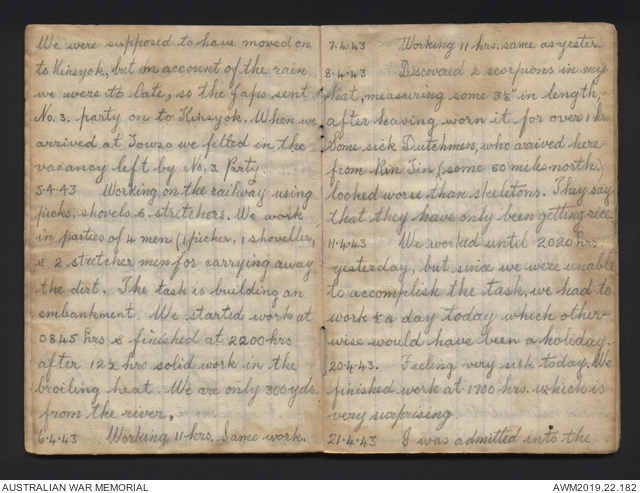 We were supposed to have moved on
to Kinsyok, but on account of the rain
we were to late, so the Japs sent
No. 3. party on to Kinsyok. When we
arrived at Towzo we filled in the
vacancy left by No. 3. Party.
5.4.43 Working on the railway using
picks, shovels & stretchers. We work
in parties of 4 men (1 picker, 1 shoveller,
& 2 stretcher men for carrying away
the dirt. The task is building an
embankment. We started work at
0845 hrs & finished at 2200 hrs
after 12½ hrs solid work in the
broiling heat. We are only 300 yds.
from the river.
6.4.43 Working 11 hrs. Same work.
7.4.43 Working 11 hrs. same as yester.
8.4.43 Discovered 2 scorpions in my
hat, measuring some 3½" in length,
after having worn it for over 1 hr
Some sick Dutchmen, who arrived here
from Kin Tin (some 50 miles north.)
looked worse than skeletons. They say
that they have only been getting rice.
11.4.43 We worked until 2020 hrs
yesterday, but since we were unable
to accomplish the task, we had to
work ½ a day today which other-
wise would have been a holiday.
20.4.43. Feeling very sick today. We
finished work at 1700 hrs. which is
very surprising
21.4.43 I was admitted into the
AUSTRALIAN WAR MEMORIAL
AWM2019.22.182